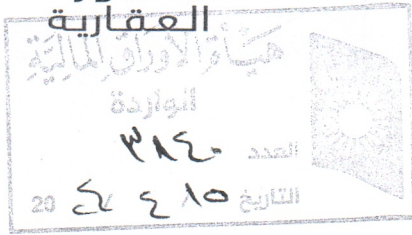 العقارية
هيأة الأوراق المالية
الواردة
العدد ٣٨٤٠
التاريخ ١٥ / ٤ / 20٢٤